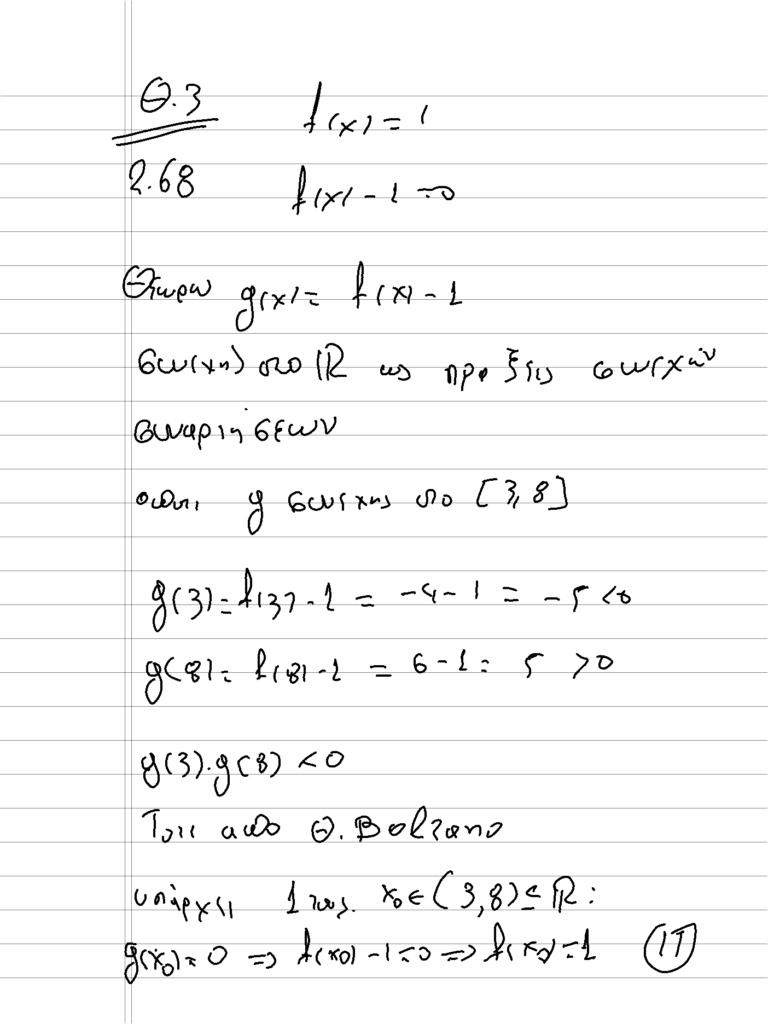 Θ.3 f(x) = 1
2.68 f(x) - 1 = 0
Θεωρω g(x) = f(x) - 1
συνεχη στο ℝ ως πραξεις συνεχών
συναρτήσεων
οποτε g συνεχης στο [3, 8]
g(3) = f(3) - 1 = -4 - 1 = -5 < 0
g(8) = f(8) - 1 = 6 - 1 = 5 > 0
g(3).g(8) < 0
Τοτε απο Θ. Bolzano
υπάρχει 1 τουλ. x₀ ∈ (3, 8) ⊆ ℝ :
g(x₀) = 0 ⇒ f(x₀) - 1 = 0 ⇒ f(x₀) = 1